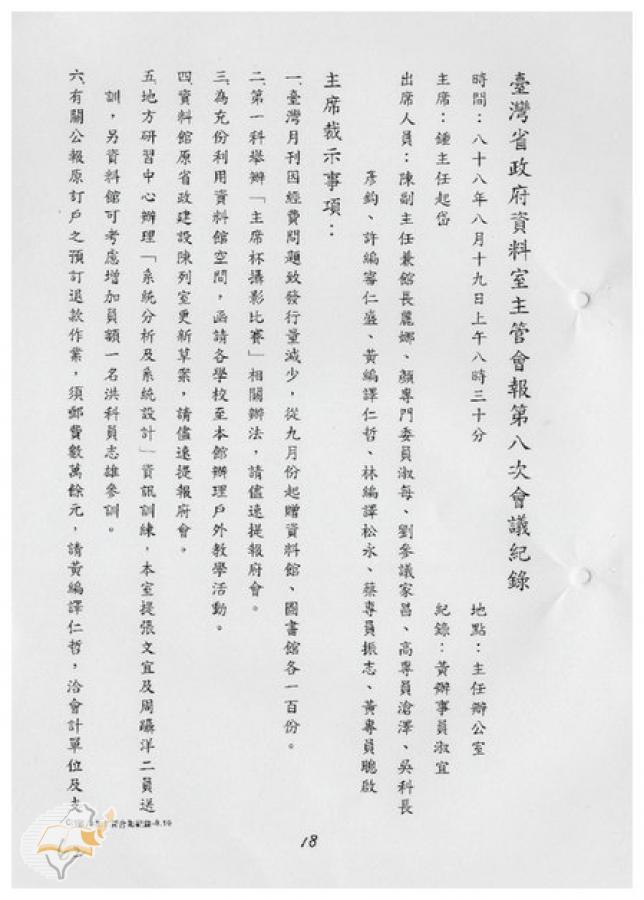 臺灣省政府資料室主管會報第八次會議紀錄
時間：八十八年八月十九日上午八時三十分 地點：主任辦公室
主席：鍾主任起岱 紀錄：黃辦事員淑宜
出席人員：陳副主任兼館長麗娜、顏專門委員淑每、劉參議家昌、高專員滄澤、吳科長
彥鈞、許編審仁盛、黃編譯仁哲、林編譯松永、蔡專員振志、黃專員聰啟
主席裁示事項：
一、臺灣月刊因經費問題致發行量減少，從九月份起贈資料館、圖書館各一百份。
二、第一科舉辦「主席杯攝影比賽」相關辦法，請儘速提報府會。
三、為充份利用資料館空間，函請各學校至本館辦理戶外教學活動。
四、資料館原省政建設陳列室更新草案，請儘速提報府會。
五、地方研習中心辦理「系統分析及系統設計」資訊訓練，本室提張文宜及周躡洋二員送
訓，另資料館可考慮增加員額一名洪科員志雄參訓。
六、有關公報原訂戶之預訂退款作業，須郵費數萬餘元，請黃編譯仁哲，洽會計單位及支
18